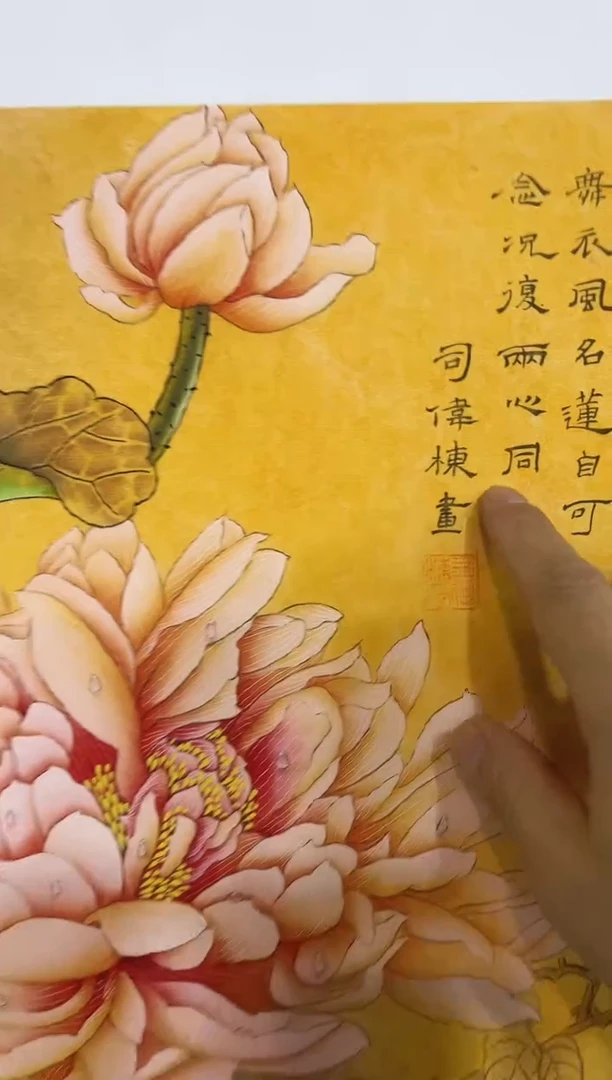 舞衣風名蓮自可
念况復兩心同
司偉棟畫